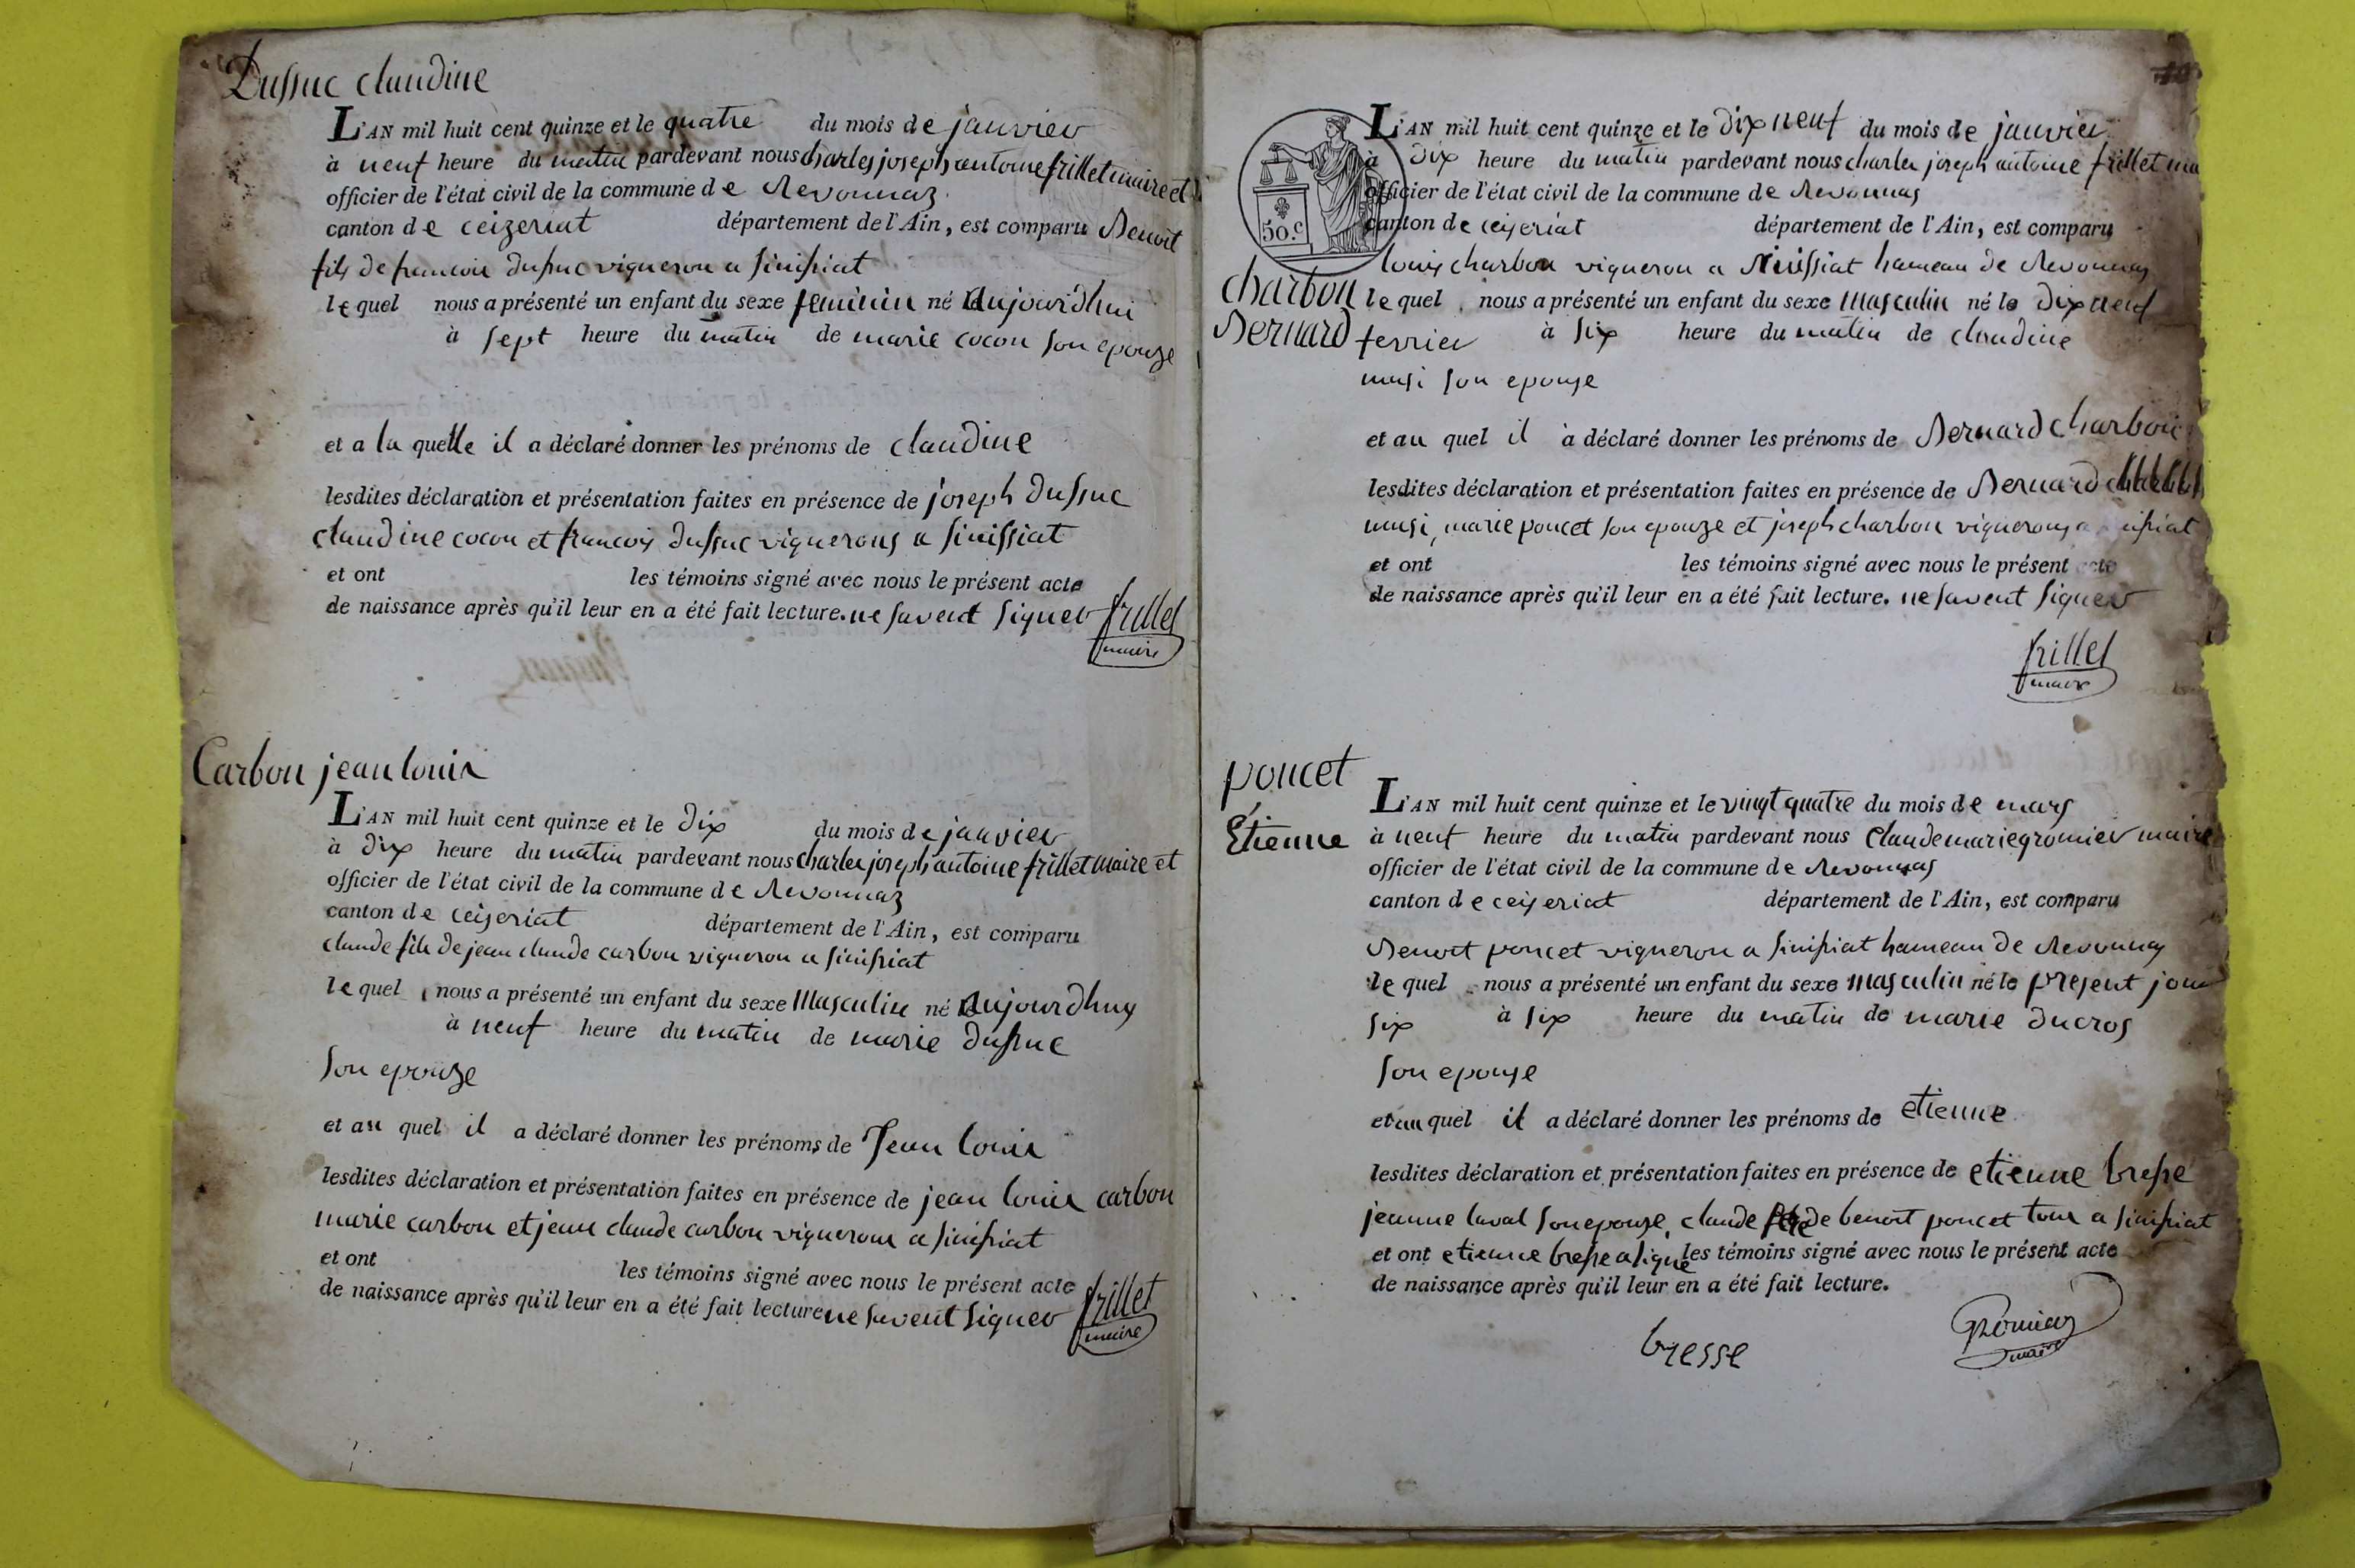 Dussuc claudine
L'AN mil huit cent quinze et le quatre du mois de janvier
à neuf heure du matin pardevant nous charles joseph antoine frillet maire et
officier de l'état civil de la commune de Revonnaz
canton de ceizeriat département de l'Ain, est comparu Benoit
fils de francois dussuc vigneron a sinissiat
le quel nous a présenté un enfant du sexe feminin né aujourdhui
à sept heure du matin de marie cocon son epouze
et a la quelle il a déclaré donner les prénoms de claudine
lesdites déclaration et présentation faites en présence de joseph dussuc
claudine cocon et francois dussuc vignerons a sinissiat
et ont les témoins signé avec nous le présent acte
de naissance après qu'il leur en a été fait lecture. ne savent signer frillet
maire
Carbon jean louis
L'AN mil huit cent quinze et le dix du mois de janvier
à dix heure du matin pardevant nous charles joseph antoine frillet maire et
officier de l'état civil de la commune de Revonnaz
canton de ceizeriat département de l'Ain, est comparu
claude fils de jean claude carbon vigneron a sinissiat
le quel nous a présenté un enfant du sexe Masculin né aujourdhuy
à neuf heure du matin de marie dussuc
son epouze
et au quel il a déclaré donner les prénoms de Jean louis
lesdites déclaration et présentation faites en présence de jean louis carbon
marie carbon et jean claude carbon vignerons a sinissiat
et ont les témoins signé avec nous le présent acte
de naissance après qu'il leur en a été fait lecture ne savent signer frillet
maire
50.c
L'AN mil huit cent quinze et le dix neuf du mois de janvier
à dix heure du matin pardevant nous charles joseph antoine frillet ma
officier de l'état civil de la commune de Revonnas
canton de ceyseriat département de l'Ain, est comparu
louis charbon vigneron a Sinissiat hameau de Revonnas
charbon le quel nous a présenté un enfant du sexe Masculin né le dix neuf
Bernard fevrier à six heure du matin de claudine
musi son epouse
et au quel il à déclaré donner les prénoms de Bernard charbon
lesdites déclaration et présentation faites en présence de Bernard
musi, marie poncet son epouze et joseph charbon vignerons a
et ont les témoins signé avec nous le présent acte
de naissance après qu'il leur en a été fait lecture. ne savent signer
frillet
maire
poncet
Etienne
L'AN mil huit cent quinze et le vingt quatre du mois de mars
à neuf heure du matin pardevant nous Claude marie gromier maire
officier de l'état civil de la commune de Revonnas
canton de ceyseriat département de l'Ain, est comparu
Benoit poncet vigneron a sinissiat hameau de Revonnas
le quel nous a présenté un enfant du sexe masculin né le present jour
six à six heure du matin de marie ducros
son epouse
et au quel il a déclaré donner les prénoms de etienne
lesdites déclaration et présentation faites en présence de etienne bresse
jeanne laval son epouse, claude de benoit poncet tous a sinissiat
et ont etienne bresse a signé les témoins signé avec nous le présent acte
de naissance après qu'il leur en a été fait lecture.
bresse Gromier
maire